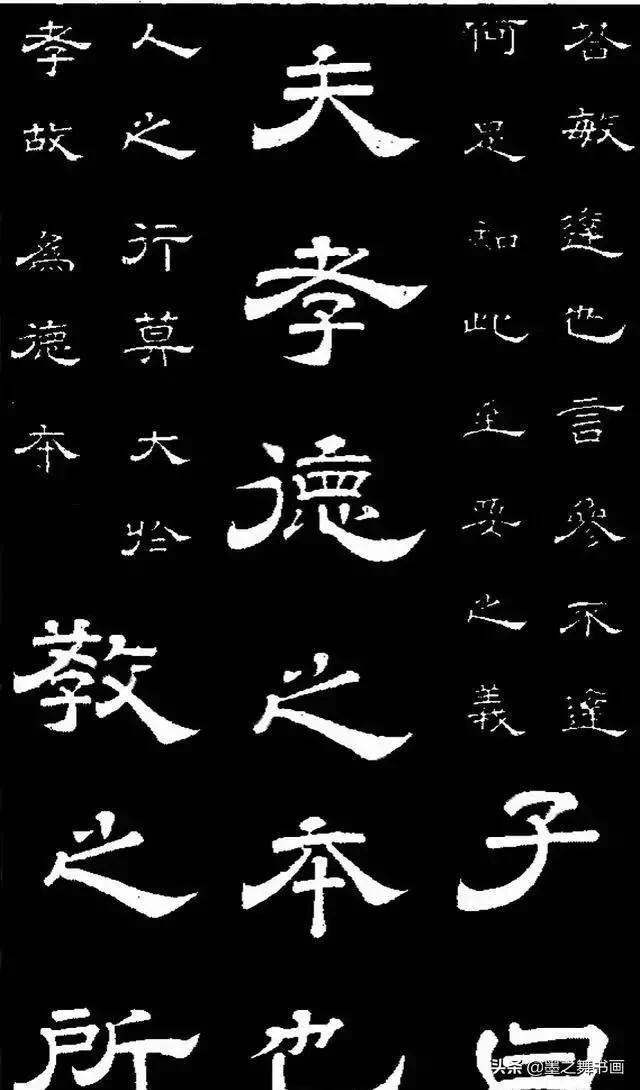 荅敏達也言參不達
何足知此至要之義
子曰
夫孝德之本也
人之行莫大於
孝故爲德本
教之所
头条 @墨之舞书画